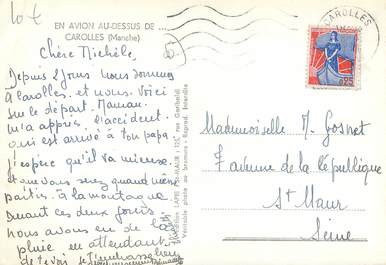 10 €
EN AVION AU-DESSUS DE
CAROLLES (Manche)
Chère Michèle,
Depuis 2 jours nous sommes
à Carolles. et nous voici
sur le départ. Maman
m'a appris l'accident
qui est arrivé à ton papa
J'espère qu'il va mieux.
et que vous serez quand même
partis à la montagne.
Durant ces deux jours
nous avons eu de la
pluie en attendant
de te voir je t'embrasse bien
CAROLLES
0,25
LAPIE ST-MAUR
rue Garibaldi
Véritable photo au bromure - Reprod. interdite
Mademoiselle M. Gosnet
7 avenue de la République
St Maur
Seine